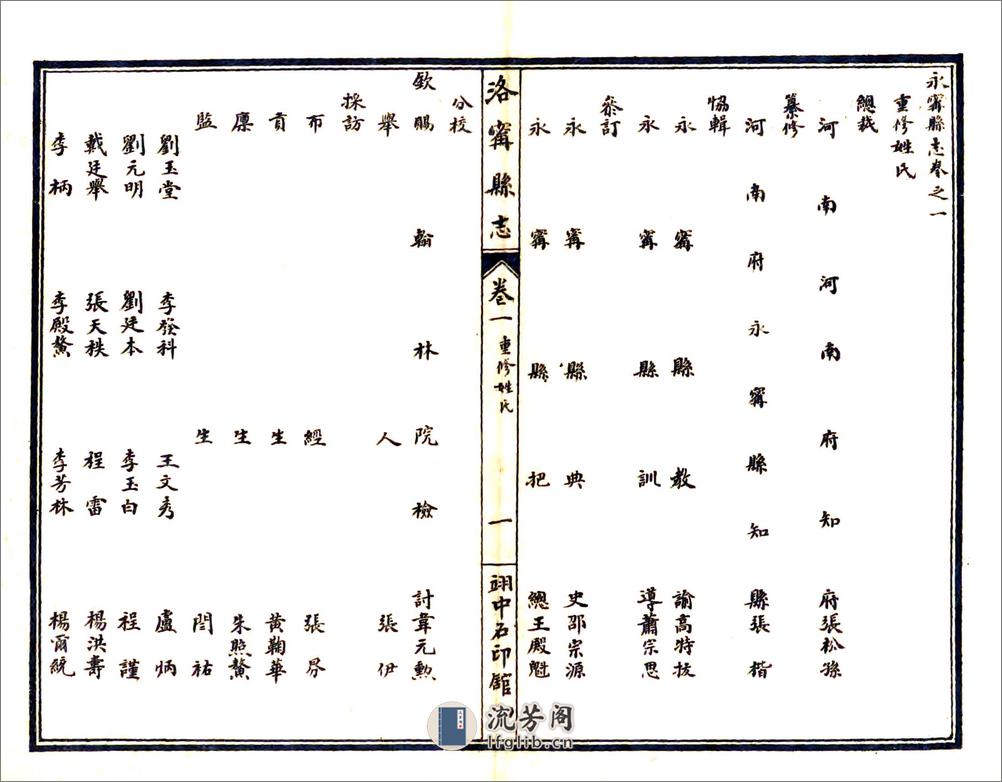 永甯縣志卷之一
重修姓氏
總裁
河南河南府知府張松孫
纂修
河南府永甯縣知縣張楷
協輯
永甯縣教諭高特
永甯縣訓導蕭宗思
叅訂
永甯縣典史邵宗源
永甯縣把總王殿魁
洛甯縣志
卷一 重修姓氏 一
翊中石印館
分校
欽賜翰林院檢討韋元勲
舉人張伊
採訪
布經張
貢生黄鞠華
廩生朱照鰲
監生閆祐
劉玉堂 李發科 王文秀 盧炳
劉元明 劉廷本 李玉白 程謹
戴廷舉 張天秩 程雷 楊洪壽
李柄 李殿鰲 李芳林 楊爾統
流芳阁
lfglib.cn